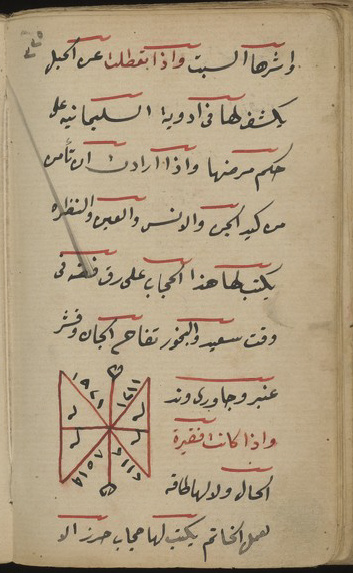 واشرها السبت واذا تعطلت عن الحبل
يكشف لها فى ادوية السليمانيه على
حكم مرضها واذا ارادت ان تأمن
من كيد الجن والانس والعين والنظره
يكتب لها هذا الحجاب على رق فضه فى
وقت سعيد والبخور تفاح الجان وقشر
عنبر وجاوى وند
واذا كانت فقيرة
الحال ولا لها طاقه
لعمل الخاتم يكتب لها حجاب حرز الا